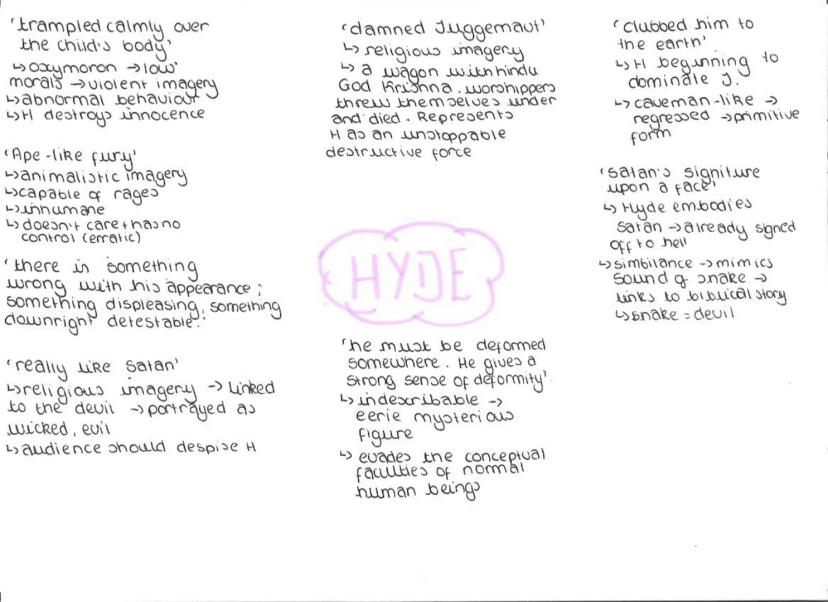 'trampled calmly over
the child's body'
↳ oxymoron → low
morals → violent imagery
↳ abnormal behaviour
↳ H destroys innocence
'Ape-like fury'
↳ animalistic imagery
↳ capable of rages
↳ inhumane
↳ doesn't care + has no
control (erratic)
'there is something
wrong with his appearance;
something displeasing, something
downright detestable.'
'really like Satan'
↳ religious imagery → linked
to the devil → portrayed as
wicked, evil
↳ audience should despise H
'damned Juggernaut'
↳ religious imagery
↳ a wagon with hindu
God Krishna. worshippers
threw themselves under
and died. Represents
H as an unstoppable
destructive force
HYDE
'he must be deformed
somewhere. He gives a
strong sense of deformity'
↳ indescribable →
eerie mysterious
figure
↳ evades the conceptual
faculties of normal
human beings
'clubbed him to
the earth'
↳ H beginning to
dominate J.
↳ caveman-like →
regressed → primitive
form
'satan's signiture
upon a face'
↳ Hyde embodies
Satan → already signed
off to hell
↳ simbilance → mimics
sound of snake →
links to biblical story
↳ snake = devil